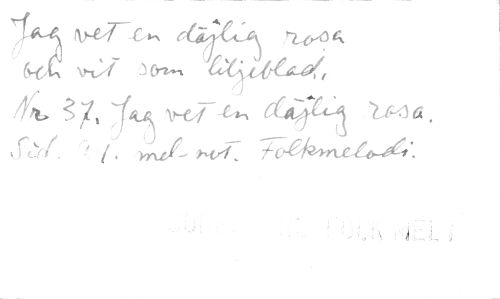 Jag vet en däjlig rosa
och vit som liljeblad,
Nr 37. Jag vet en däjlig rosa.
Sid. 91. mel-not. Folkmelodi.